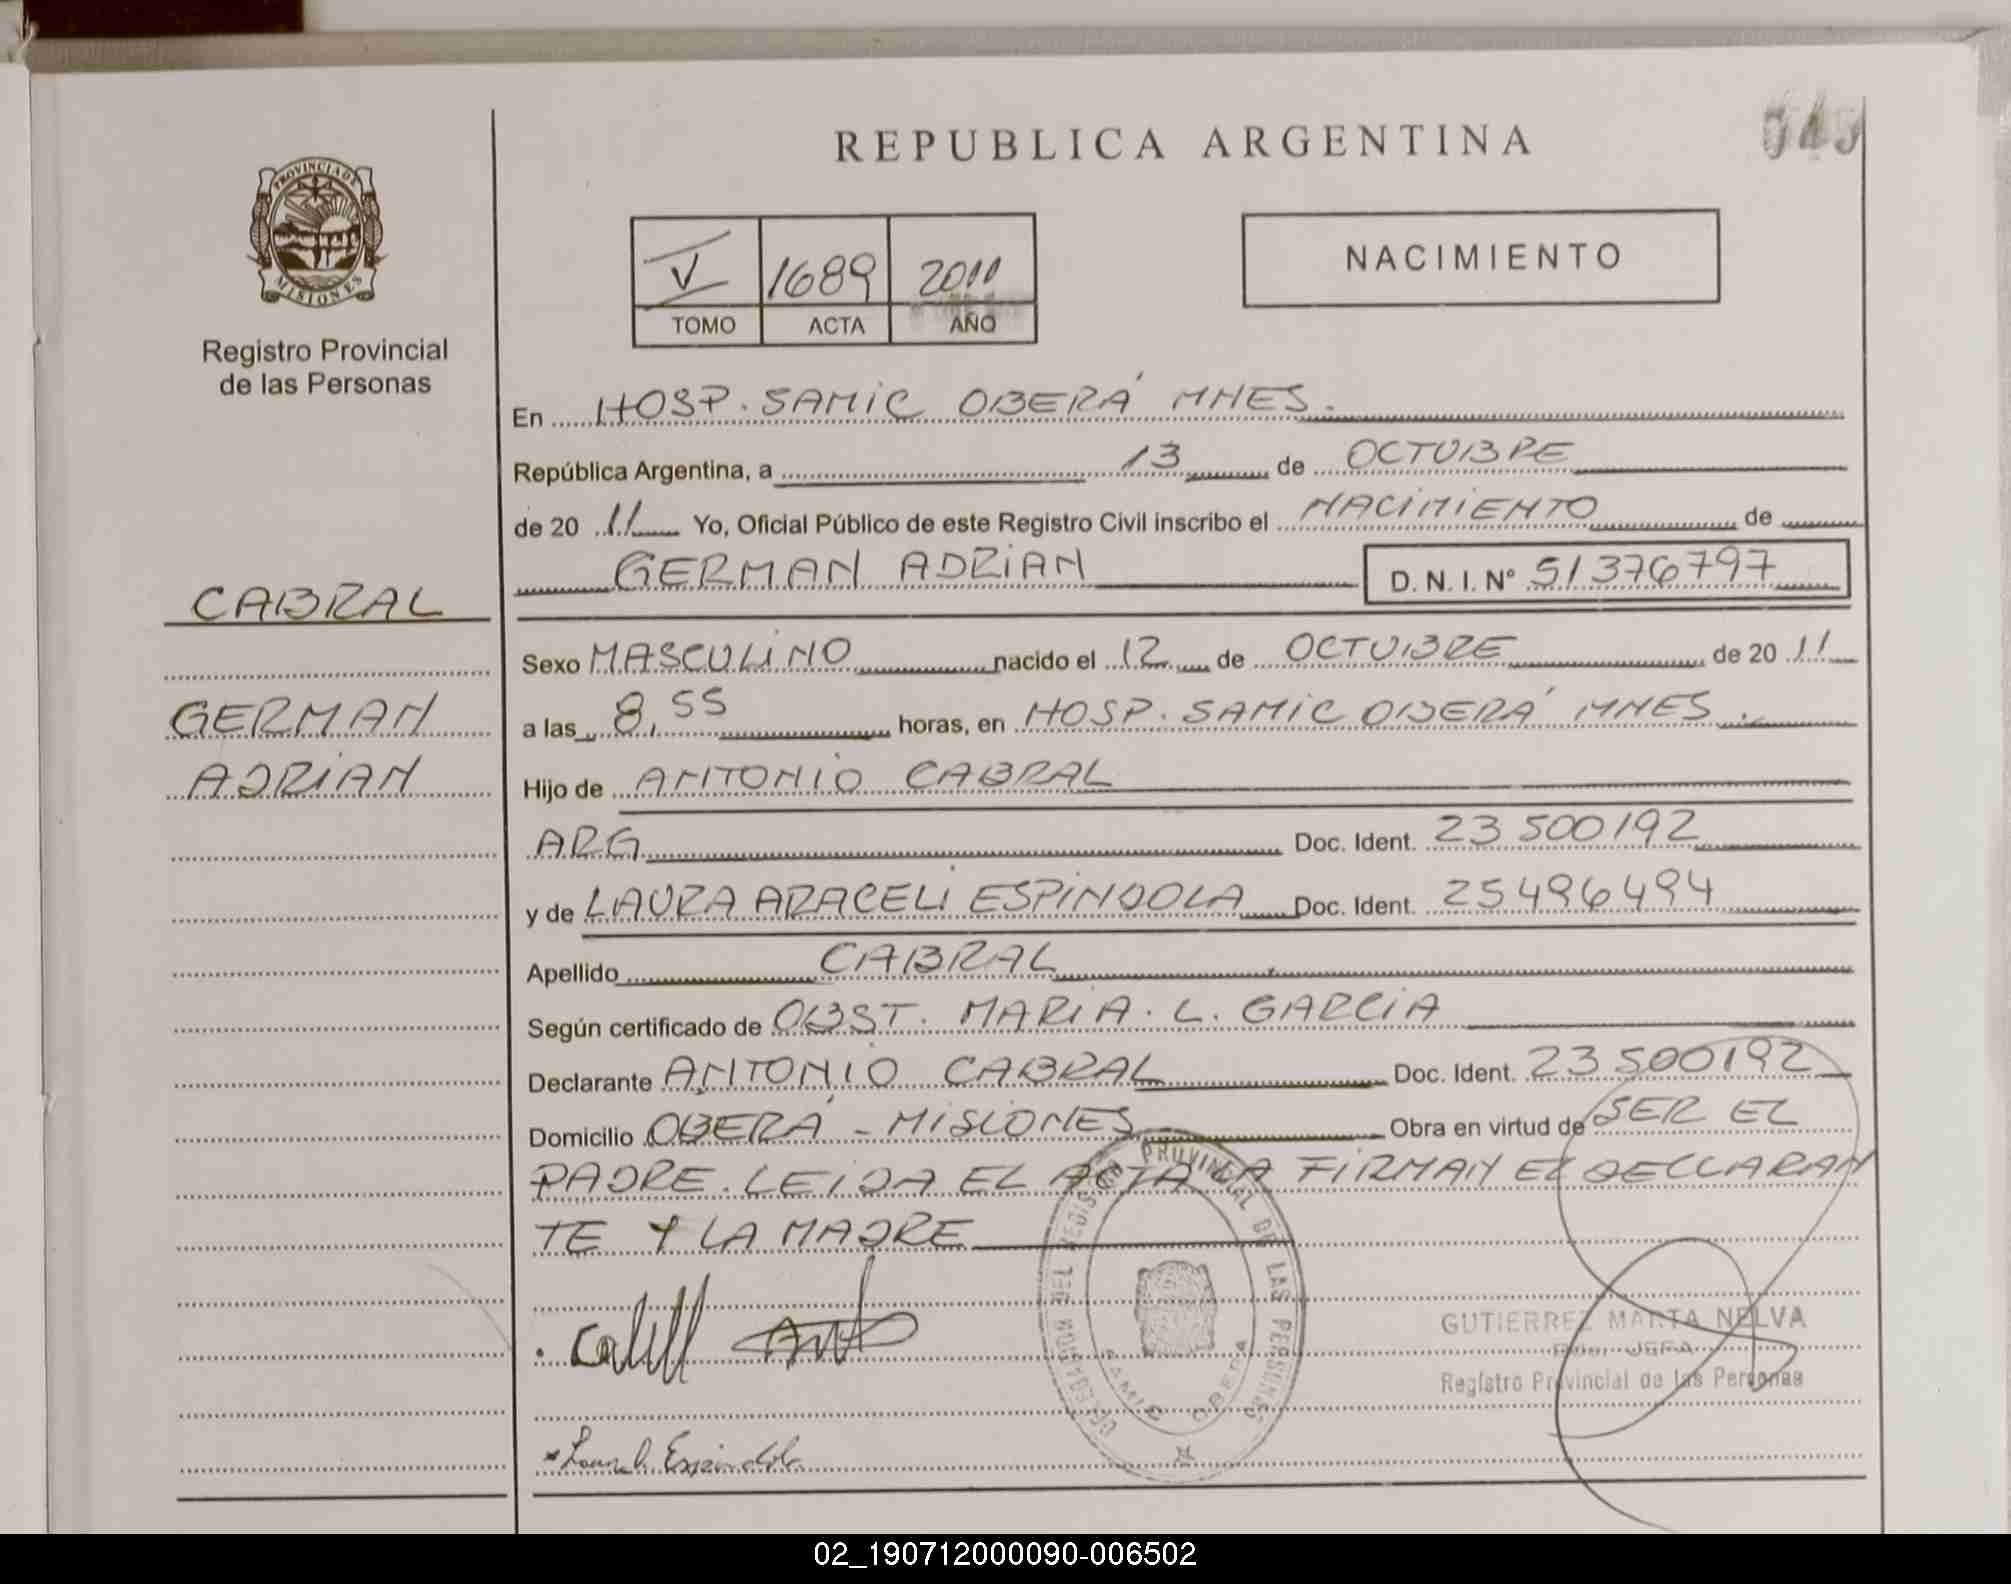 REPUBLICA ARGENTINA
PROVINCIA DE
MISIONES
Registro Provincial
de las Personas
V 1689 2011
TOMO ACTA AÑO
NACIMIENTO
En HOSP. SAMIC OBERÁ MNES.
República Argentina, a 13 de OCTUBRE
de 20 11 Yo, Oficial Público de este Registro Civil inscribo el NACIMIENTO de
GERMAN ADRIAN D. N. I. Nº 51376797
CABRAL
GERMAN
ADRIAN
Sexo MASCULINO nacido el 12 de OCTUBRE de 20 11
a las 8,55 horas, en HOSP. SAMIC OBERÁ MNES.
Hijo de ANTONIO CABRAL
ARG Doc. Ident. 23500192
y de LAURA ARACELI ESPINDOLA Doc. Ident. 25496494
Apellido CABRAL
Según certificado de OBST. MARIA. L. GARCIA
Declarante ANTONIO CABRAL Doc. Ident. 23500192
Domicilio OBERÁ - MISIONES Obra en virtud de SER EL
PADRE. LEIDA EL ACTA LA FIRMAN EL DECLARAN
TE Y LA MADRE
GUTIERREZ MARTA NELVA
JEFA
Registro Provincial de las Personas
DELEGACION DEL REGISTRO PROVINCIAL DE LAS PERSONAS
SAMIC OBERA
Espindola
02_190712000090-006502